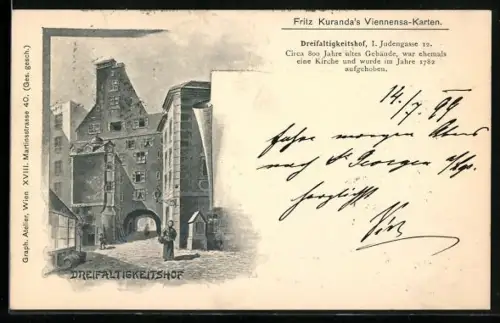 Fritz Kuranda's Viennensa-Karten.
Dreifaltigkeitshof, I. Judengasse 12.
Circa 800 Jahre altes Gebäude, war ehemals
eine Kirche und wurde im Jahre 1782
aufgehoben.
14./7. 99
fahre morgen Abens
nach St. Georgen
herzlichst
DREIFALTIGKEITSHOF
Graph. Atelier, Wien XVIII. Martinsstrasse 40. (Ges. gesch.)